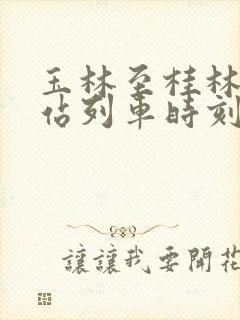 玉林至桂林
佔列車時刻
讓讓我要開花